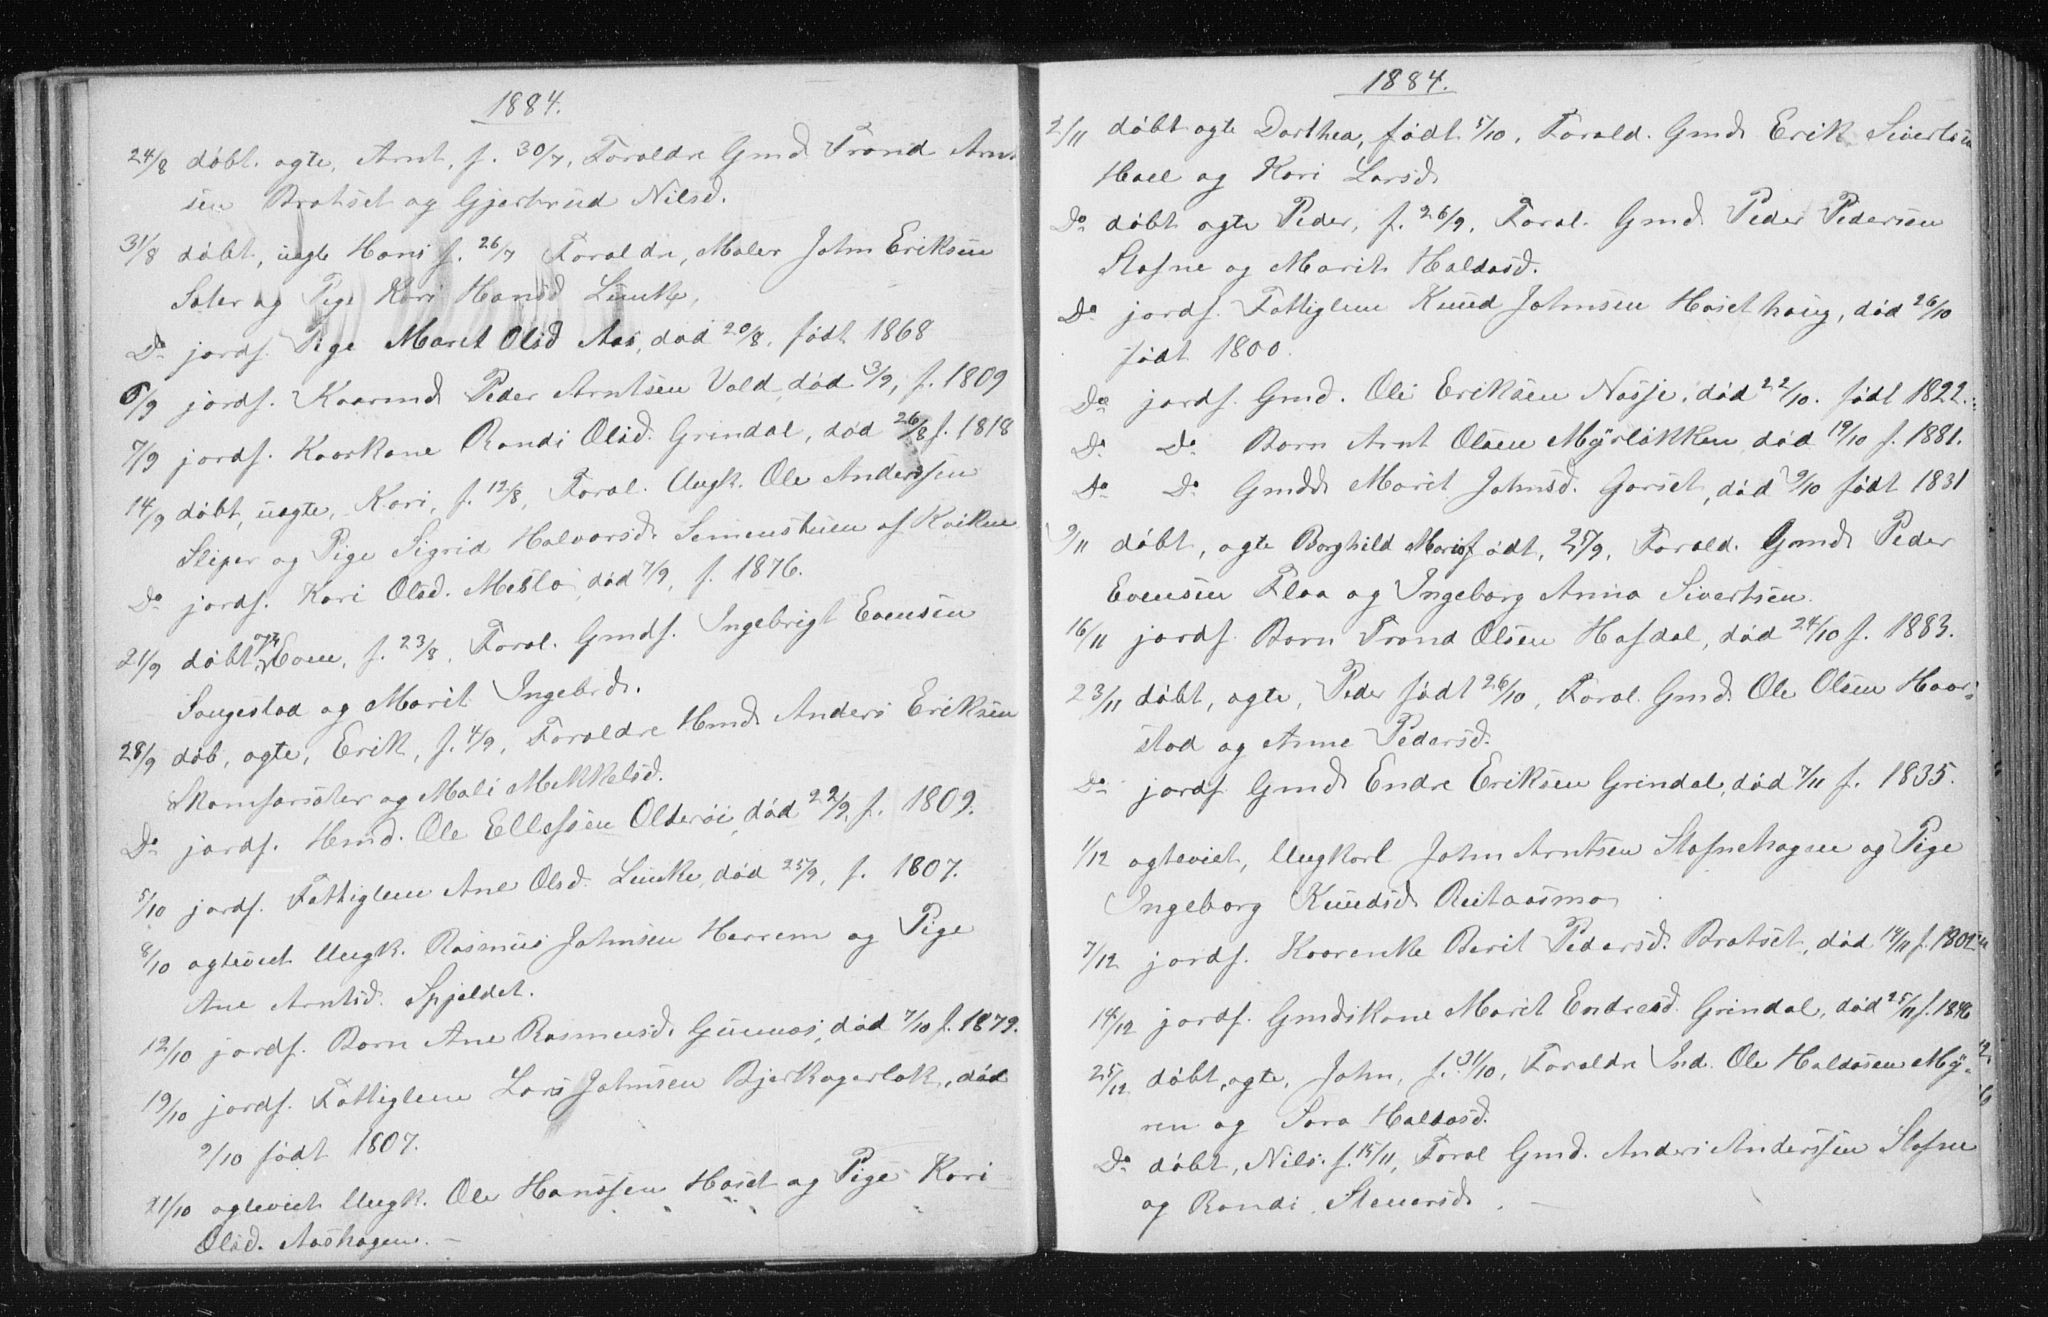 1884.
24/8 døbt. ægte, Arnt, f. 30/7, Forældre Gmd Trond Arnt
sen Bratset og Gjertrud Nilsd.
31/8 døbt, uægte Hans f. 26/7 Forældre, Maler John Eriksen
Sæter og Pige Kari Hansd Lunke,
Do jordf. Pige Maret Olsd Aas, død 20/8, født 1868
6/9 jordf. Kaarmd Peder Arntsen Vold, død 3/9, f. 1809
7/9 jordf. Kaarkone Randi Olsd. Grindal, død 26/8 f. 1818
14/9 døbt, uægte, Kari, f. 12/8, Foræl. Ungk. Ole Anderssen
Sliper og Pige Sigrid Halvorsd. Semenstuen af Kvikne
Do jordf. Kari Olsd. Meslo, død 7/9, f. 1876.
21/9 døbt, ægte Even, f. 23/8, Foræl. Gmdf. Ingebrigt Evensen
Saugestad og Marit Ingebrd.
28/9 døb, ægte, Erik, f. 4/9, Forældre Hmd Anders Eriksen
Skamfarsæter og Mali Mekkelsd.
Do jordf. Hmd. Ole Ellefsen Olderøi, død 22/9, f. 1809.
5/10 jordf. Fattiglem Ane Olsd. Lunke, død 25/9, f. 1807.
8/10 ægteviet Ungk. Rasmus Johnsen Herrem og Pige
Ane Arntsd. Spjeldet.
12/10 jordf. Barn Ane Rasmusd. Gunnes, død 7/10 f. 1879.
19/10 jordf. Fattiglem Lars Johnsen Bjerkagerløk, død
9/10 født 1807.
21/10 ægteviet Ungk. Ole Hanssen Hoset og Pige Kari
Olsd. Aashagen. –
1884.
2/11 døbt ægte Dorthea, født 5/10, Foræld. Gmd Erik Sivertsen
Hoel og Kari Larsd.
Do døbt ægte Peder, f. 26/9, Foræl. Gmd. Peder Pedersen
Stafne og Marit Haldosd.
Do jordf. Fattiglem Knud Johnsen Hosethaug, død 26/10
født 1800.
Do jordf. Gmd. Ole Eriksen Næsje, død 22/10. født 1822.
Do Do Barn Arnt Olsen Myrløkken, død 19/10 f. 1881.
Do Do Gmdd Marit Johnsd. Garset, død 9/10 født 1831
9/11 døbt, ægte Borghild Marie født, 27/9, Foræld. Gmd Peder
Evensen Flaa og Ingeborg Anna Sivertsen.
16/11 jordf. Barn Trond Olsen Hafdal, død 24/10 f. 1883.
23/11 døbt, ægte, Peder født 26/10, Foræl. Gmd. Ole Olsen Haar-
stad og Anne Pedersd.
Do jordf Gmd Endre Eriksen Grindal, død 7/11 f. 1835.
1/12 ægteviet, Ungkarl John Arntsen Stafnehagen og Pige
Ingeborg Knudsd Reitaasmo
7/12 jordf. Kaarenke Berit Pedersd. Bratset, død 14/11 f. 1802
14/12 jordf. Gmdskone Marit Endresd. Grindal, død 25/11 f. 1846
25/12 døbt, ægte, John, f. 31/10, Forældre Ind. Ole Haldosen My-
ren og Sara Haldosd.
Do døbt, Nils f. 15/11, Foræl Gmd. Anders Anderssen Stafne
og Randi Steuersd. –